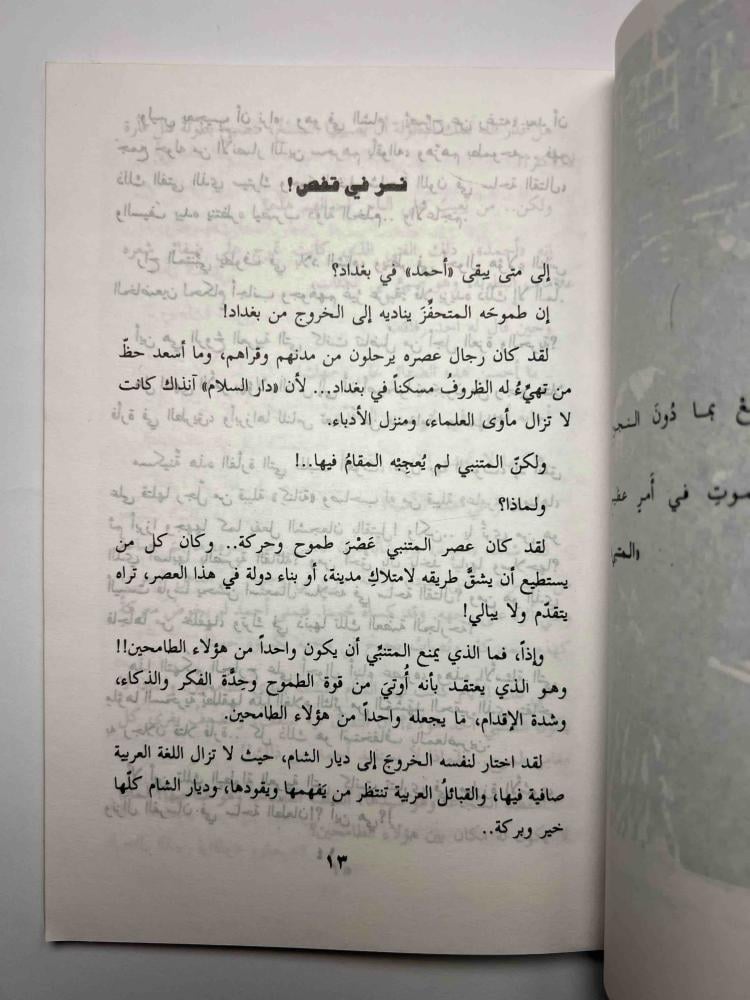 نسر في قفص!
إلى متى يبقى «أحمد» في بغداد؟
إن طموحَه المتحفِّزَ يناديه إلى الخروج من بغداد!
لقد كان رجال عصره يرحلون من مدنهم وقراهم، وما أسعد حظّ
من تهيِّءُ له الظروفُ مسكناً في بغداد... لأن «دار السلام» آنذاك كانت
لا تزال مأوى العلماء، ومنزل الأدباء.
ولكنّ المتنبي لم يُعجِبْه المقامُ فيها..!
ولماذا؟
لقد كان عصر المتنبي عَصْرَ طموح وحركة.. وكان كل من
يستطيع أن يشقَّ طريقه لامتلاكِ مدينة، أو بناء دولة في هذا العصر، تراه
يتقدّم ولا يبالي!
وإذاً، فما الذي يمنع المتنبِّي أن يكون واحداً من هؤلاء الطامحين!!
وهو الذي يعتقد بأنه أُوتيَ من قوة الطموح وحِدَّة الفكر والذكاء،
وشدة الإقدام، ما يجعله واحداً من هؤلاء الطامحين.
لقد اختار لنفسه الخروجَ إلى ديار الشام، حيث لا تزال اللغة العربية
صافية فيها، والقبائلُ العربية تنتظر من يَفهمها ويقودها، وديار الشام كلّها
خير وبركة..
١٣
بما دُونَ
في أَمرٍ